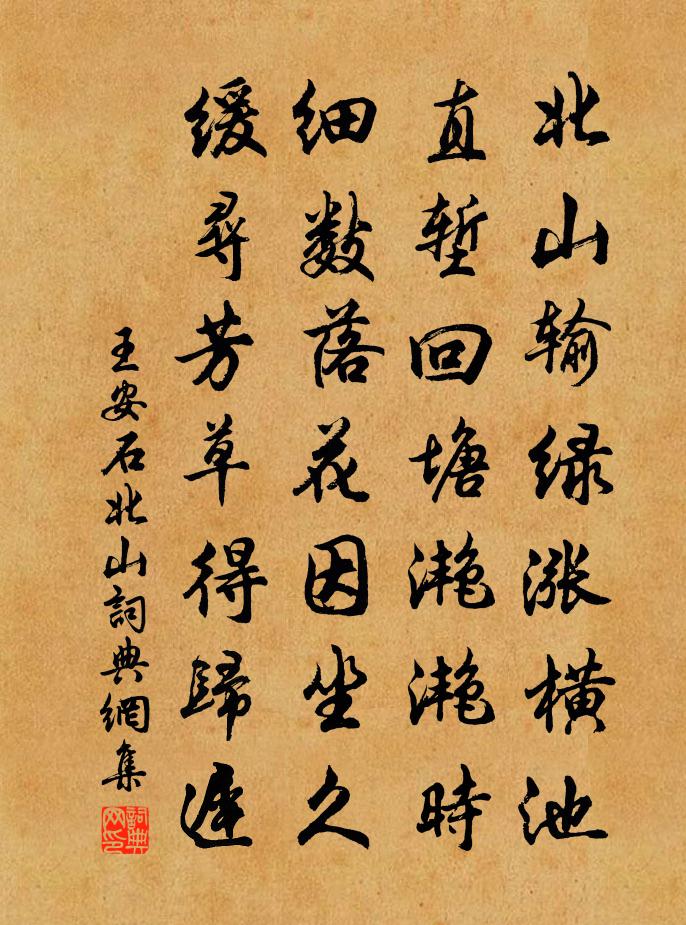 北山输绿涨横池
直堑回塘滟滟時
细数落花因坐久
缓寻芳草得歸遲
王安石北山詞典網集
詞典网印